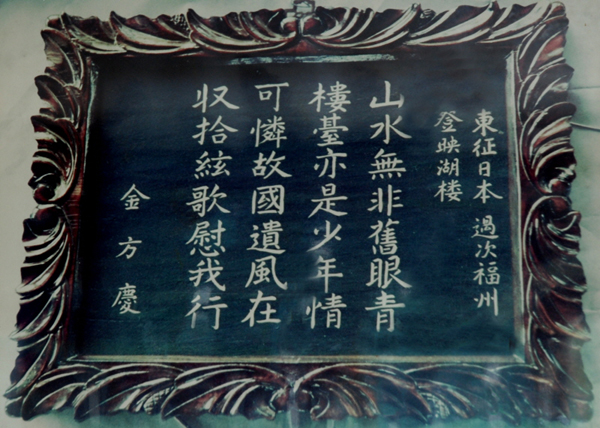 東征日本 過次福州
登映湖楼
山水無非舊眼青
樓臺亦是少年情
可憐故國遺風在
収拾絃歌慰我行
金方慶